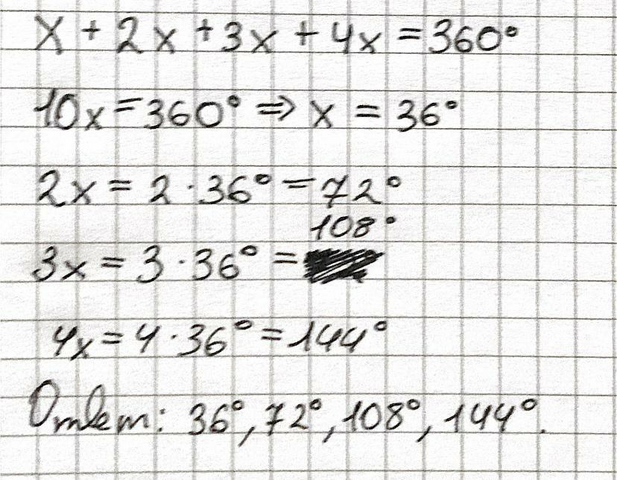 x + 2x + 3x + 4x = 360°
10x = 360° ⇒ x = 36°
2x = 2 · 36° = 72°
108°
3x = 3 · 36° =
4x = 4 · 36° = 144°
Ответ: 36°, 72°, 108°, 144°.